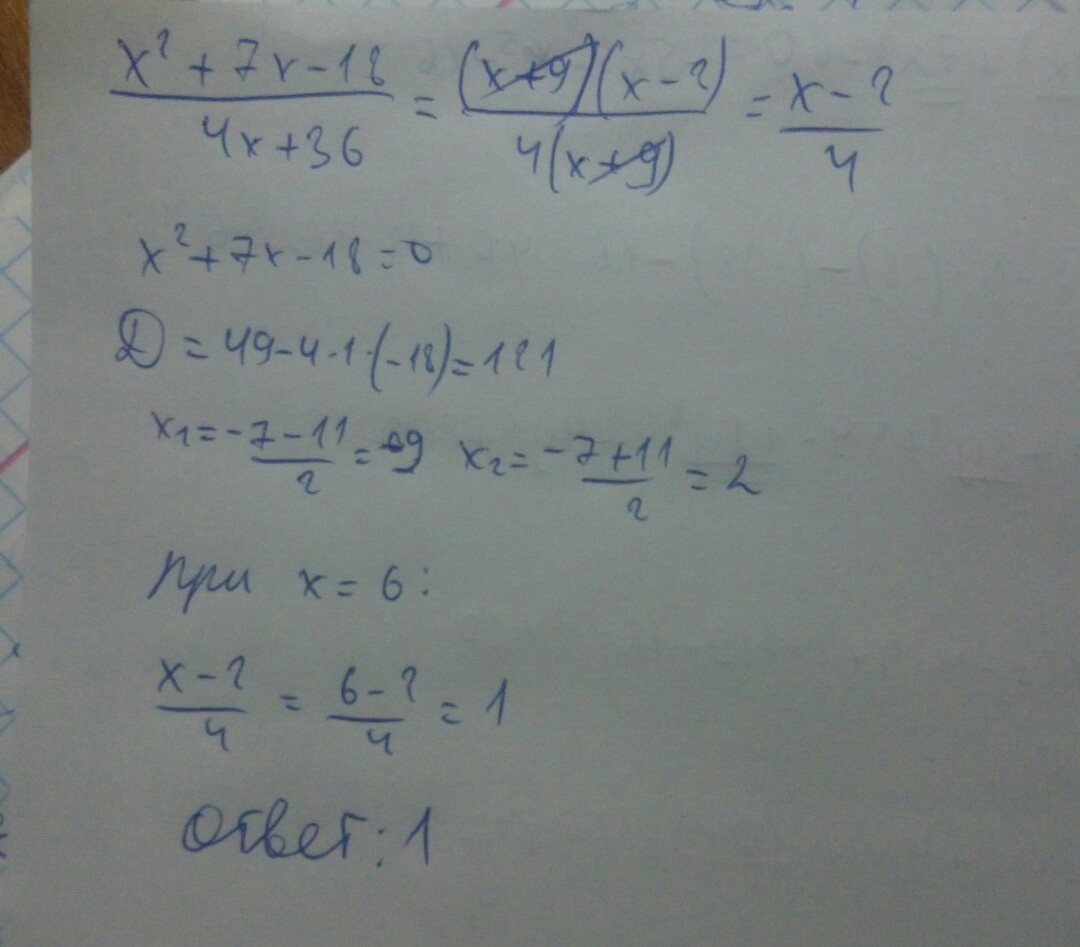 x² + 7x - 18 / 4x + 36 = (x+9)(x-2) / 4(x+9) = x-2 / 4
x² + 7x - 18 = 0
D = 49 - 4 · 1 · (-18) = 121
x₁ = -7-11 / 2 = -9 x₂ = -7+11 / 2 = 2
при x = 6:
x-2 / 4 = 6-2 / 4 = 1
Ответ: 1